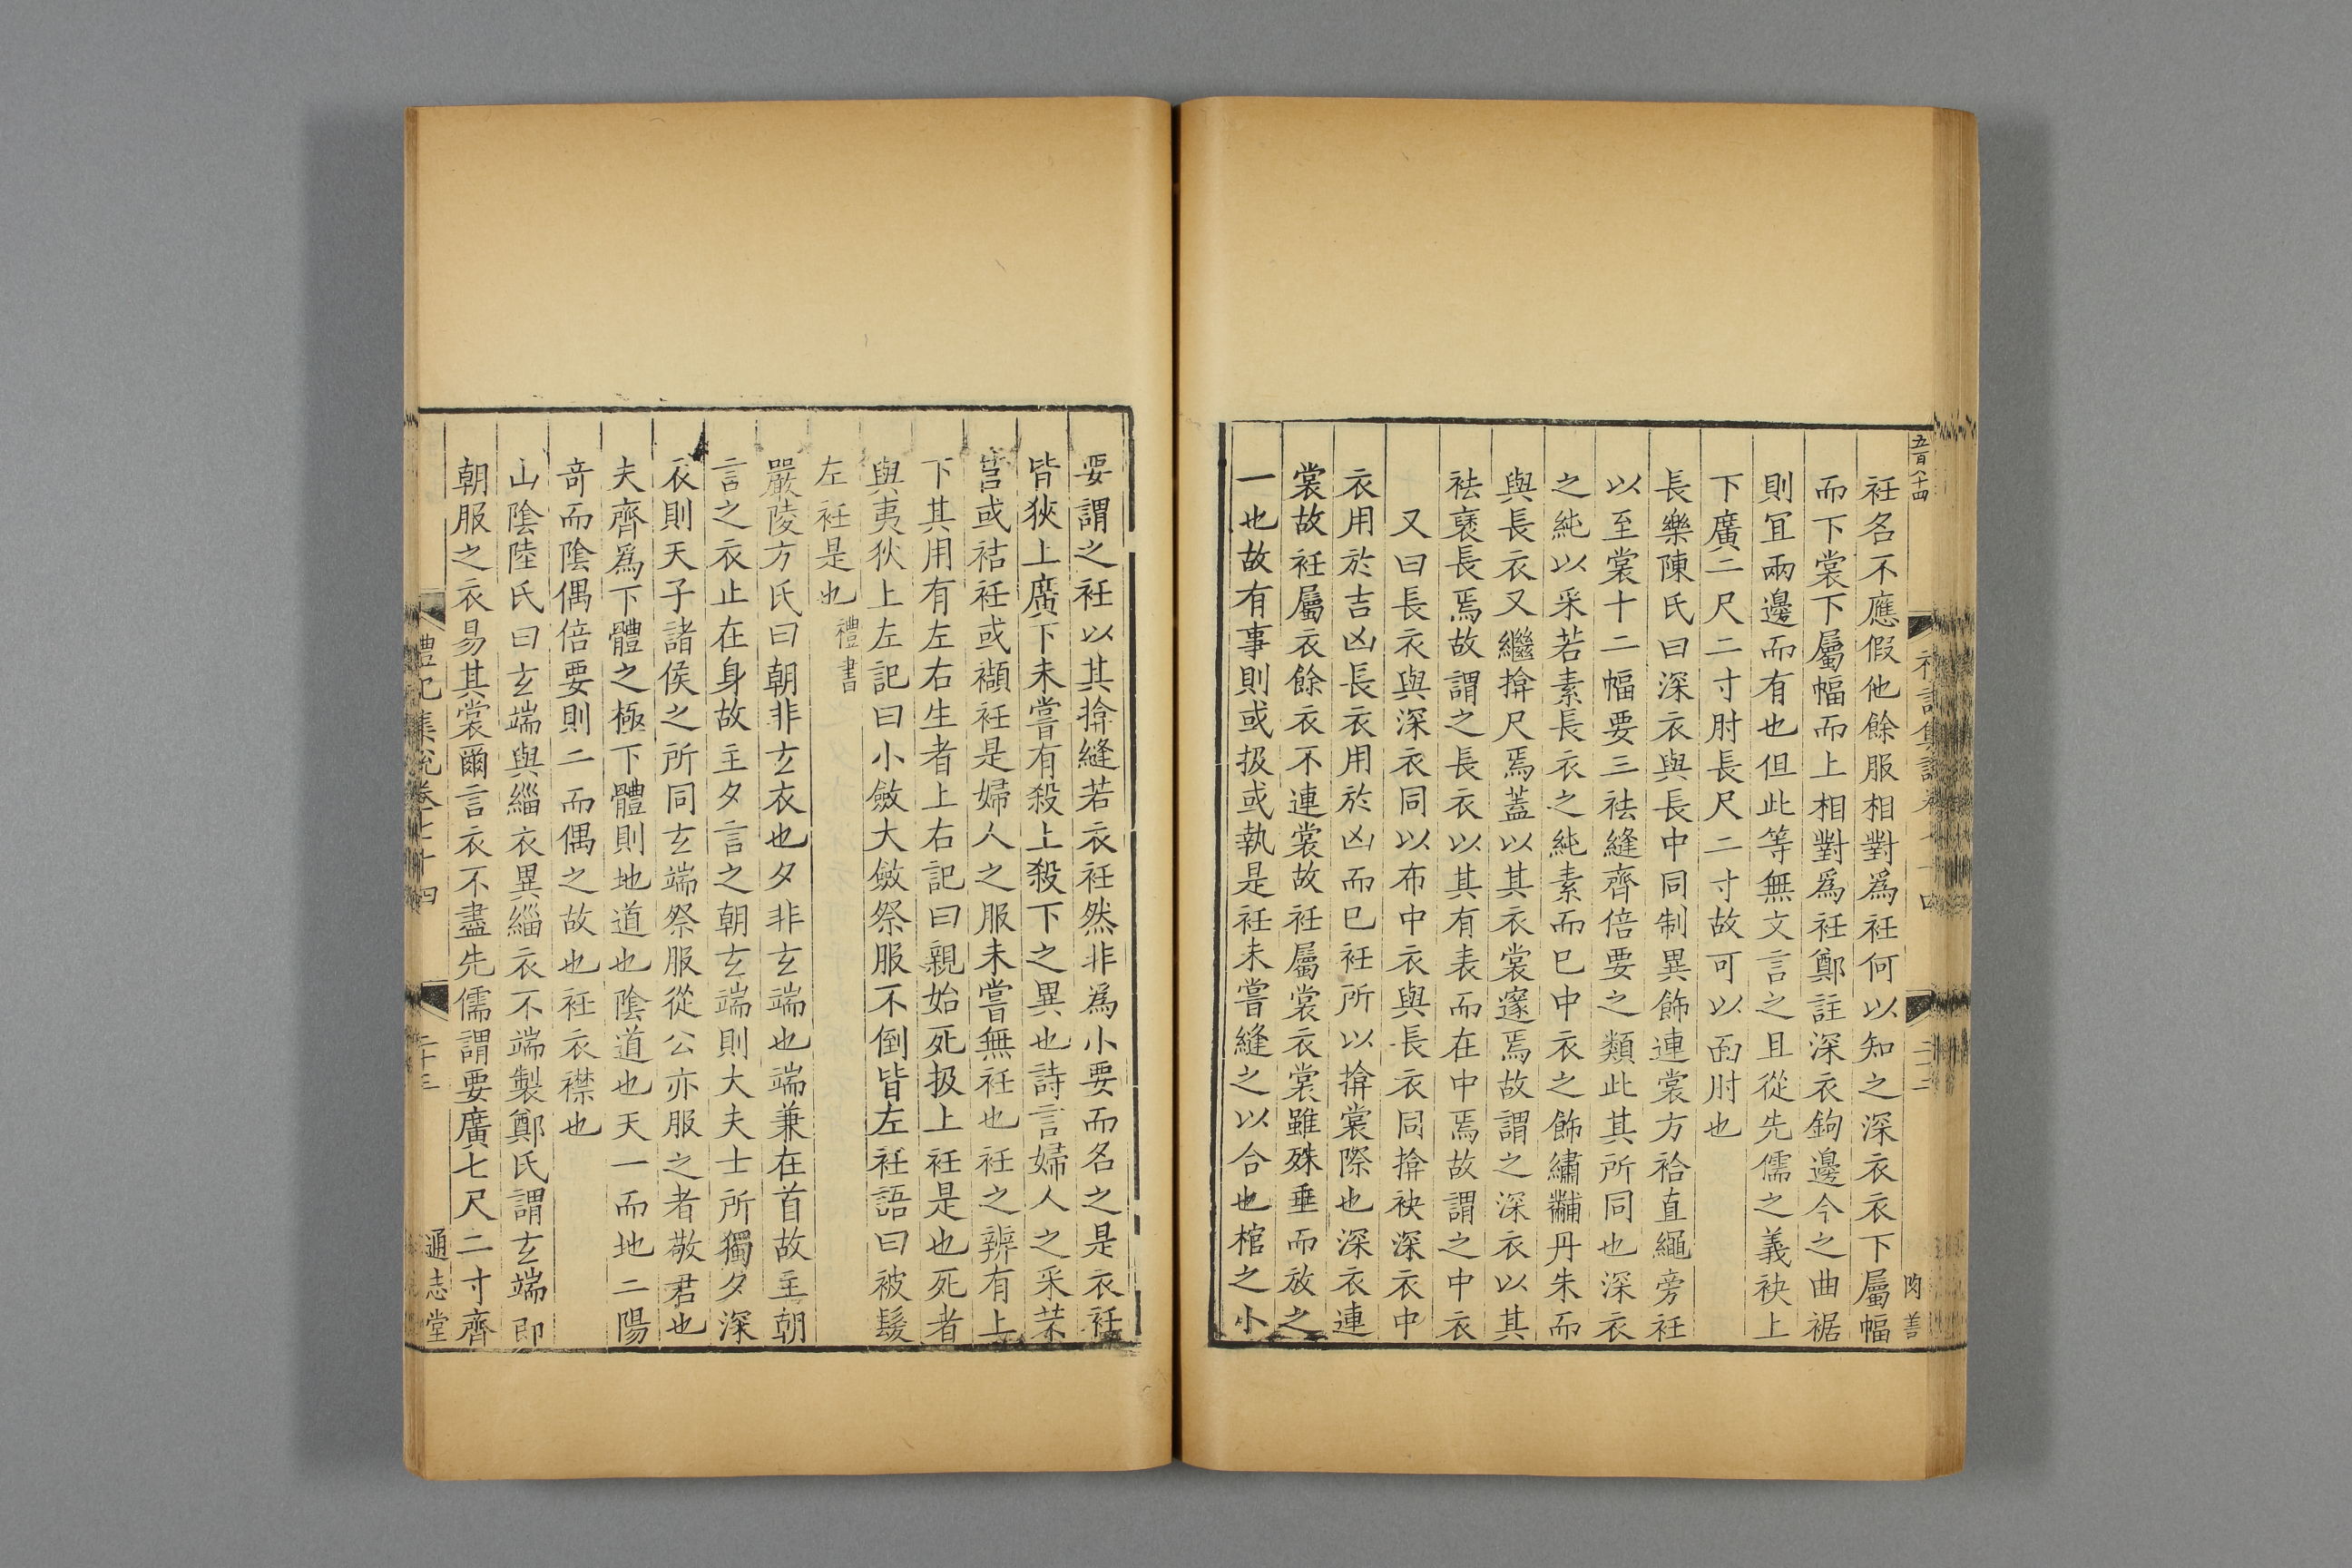 五百八十四
衽名不應假他餘服相對爲衽何以知之深衣衣下屬幅
而下裳下屬幅而上相對爲衽鄭註深衣鉤邊今之曲裾
則冝兩邊而有也但此等無文言之且從先儒之義袂上
下廣二尺二寸肘長尺二寸故可以囬肘也
長樂陳氏曰深衣與長中同制異飾連裳方袷直繩旁衽
以至裳十二幅要三袪縫齊倍要之類此其所同也深衣
之純以采若素長衣之純素而巳中衣之飾繡黼丹朱而
與長衣又繼揜尺焉蓋以其衣裳邃焉故謂之深衣以其
袪褎長焉故謂之長衣以其有表而在中焉故謂之中衣
又曰長衣與深衣同以布中衣與長衣同揜袂深衣中
衣用於吉凶長衣用於凶而巳衽所以揜裳際也深衣連
裳故衽屬衣餘衣不連裳故衽屬裳衣裳雖殊垂而放之
一也故有事則或扱或執是衽未嘗縫之以合也棺之小
要謂之衽以其揜縫若衣衽然非爲小要而名之是衣衽
皆狹上廣下未嘗有殺上殺下之異也詩言婦人之采芣
苢或袺衽或襭衽是婦人之服未嘗無衽也衽之辨有上
下其用有左右生者上右記曰親始死扱上衽是也死者
與夷狄上左記曰小斂大斂祭服不倒皆左衽語曰被髮
左衽是也禮書
嚴陵方氏曰朝非玄衣也夕非玄端也端兼在首故主朝
言之衣止在身故主夕言之朝玄端則大夫士所獨夕深
衣則天子諸侯之所同玄端祭服從公亦服之者敬君也
夫齊爲下體之極下體則地道也陰道也天一而地二陽
奇而陰偶倍要則二而偶之故也衽衣襟也
山陰陸氏曰玄端與緇衣異緇衣不端製鄭氏謂玄端即
朝服之衣易其裳爾言衣不盡先儒謂要廣七尺二寸齊
禮記集說卷七十四
二十三
通志堂